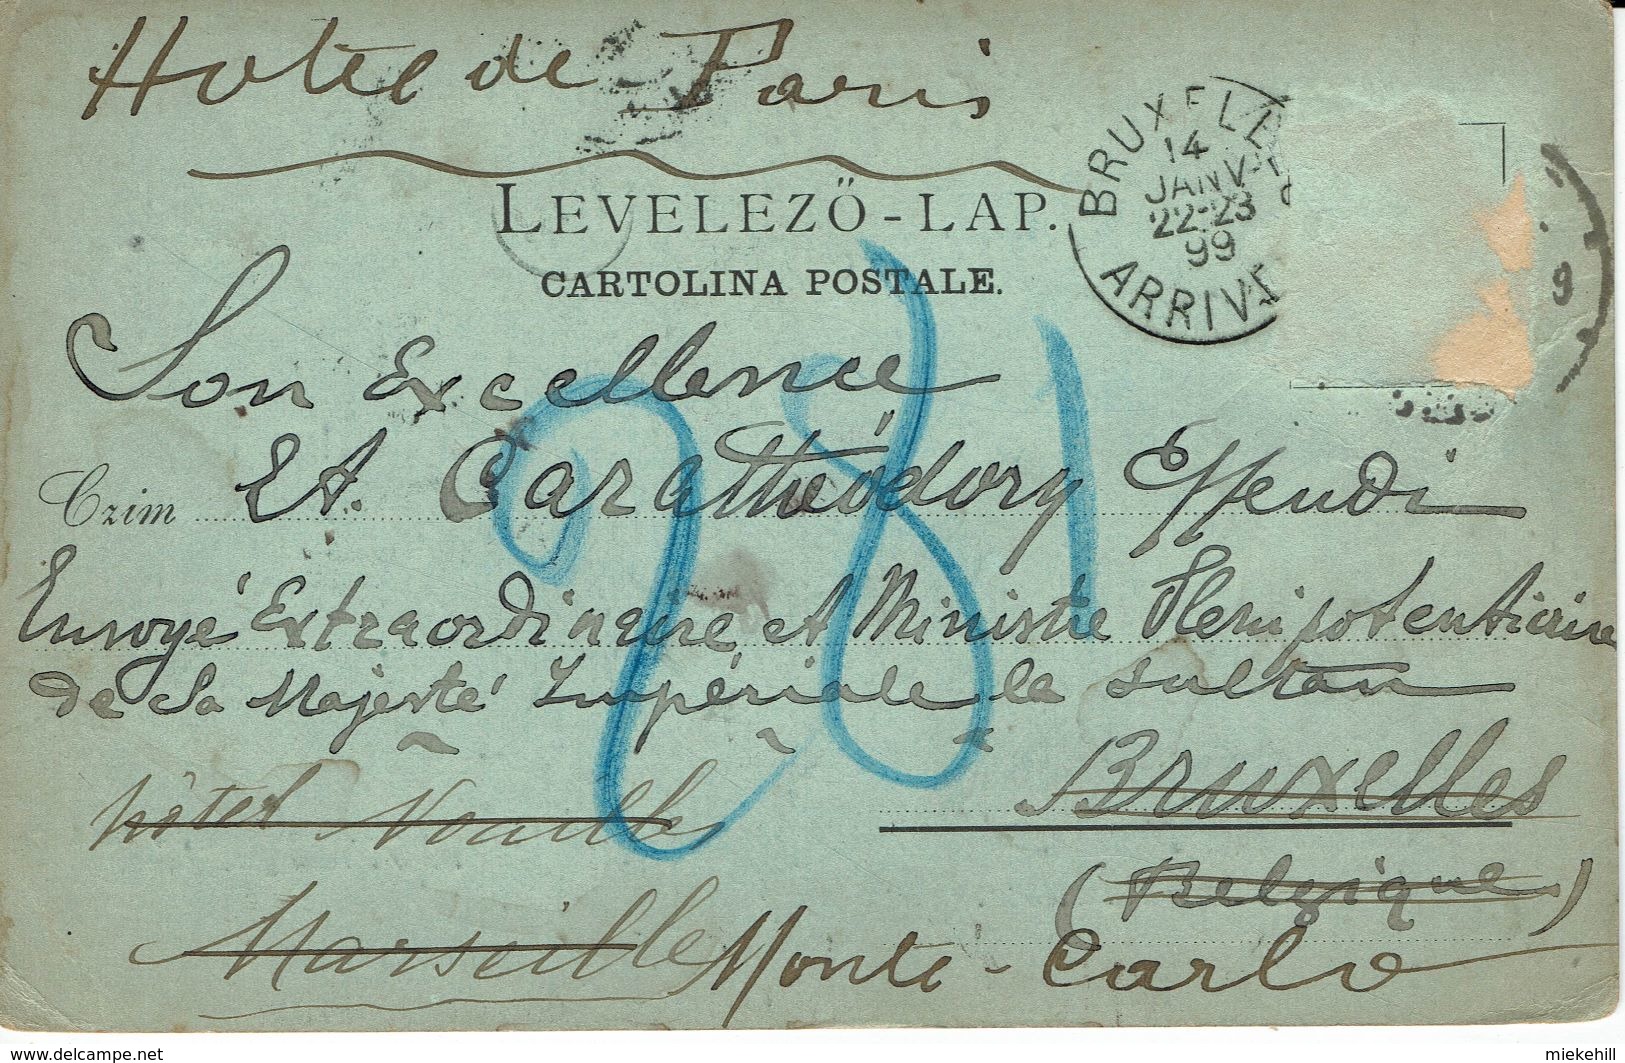 Hotel de Paris
BRUXELLE
14
JANV-
22-23
99
ARRIVE
9
LEVELEZŐ-LAP.
CARTOLINA POSTALE.
Son Excellence
Czim Et. Carathéodory Effendi
Envoyé Extraordinaire et Ministre Plenipotentiaire
de Sa Majesté Impériale le Sultan
281
Bruxelles
hôtel Noailles
(Belgique)
Marseille Monte-Carlo
www.delcampe.net
miekehill